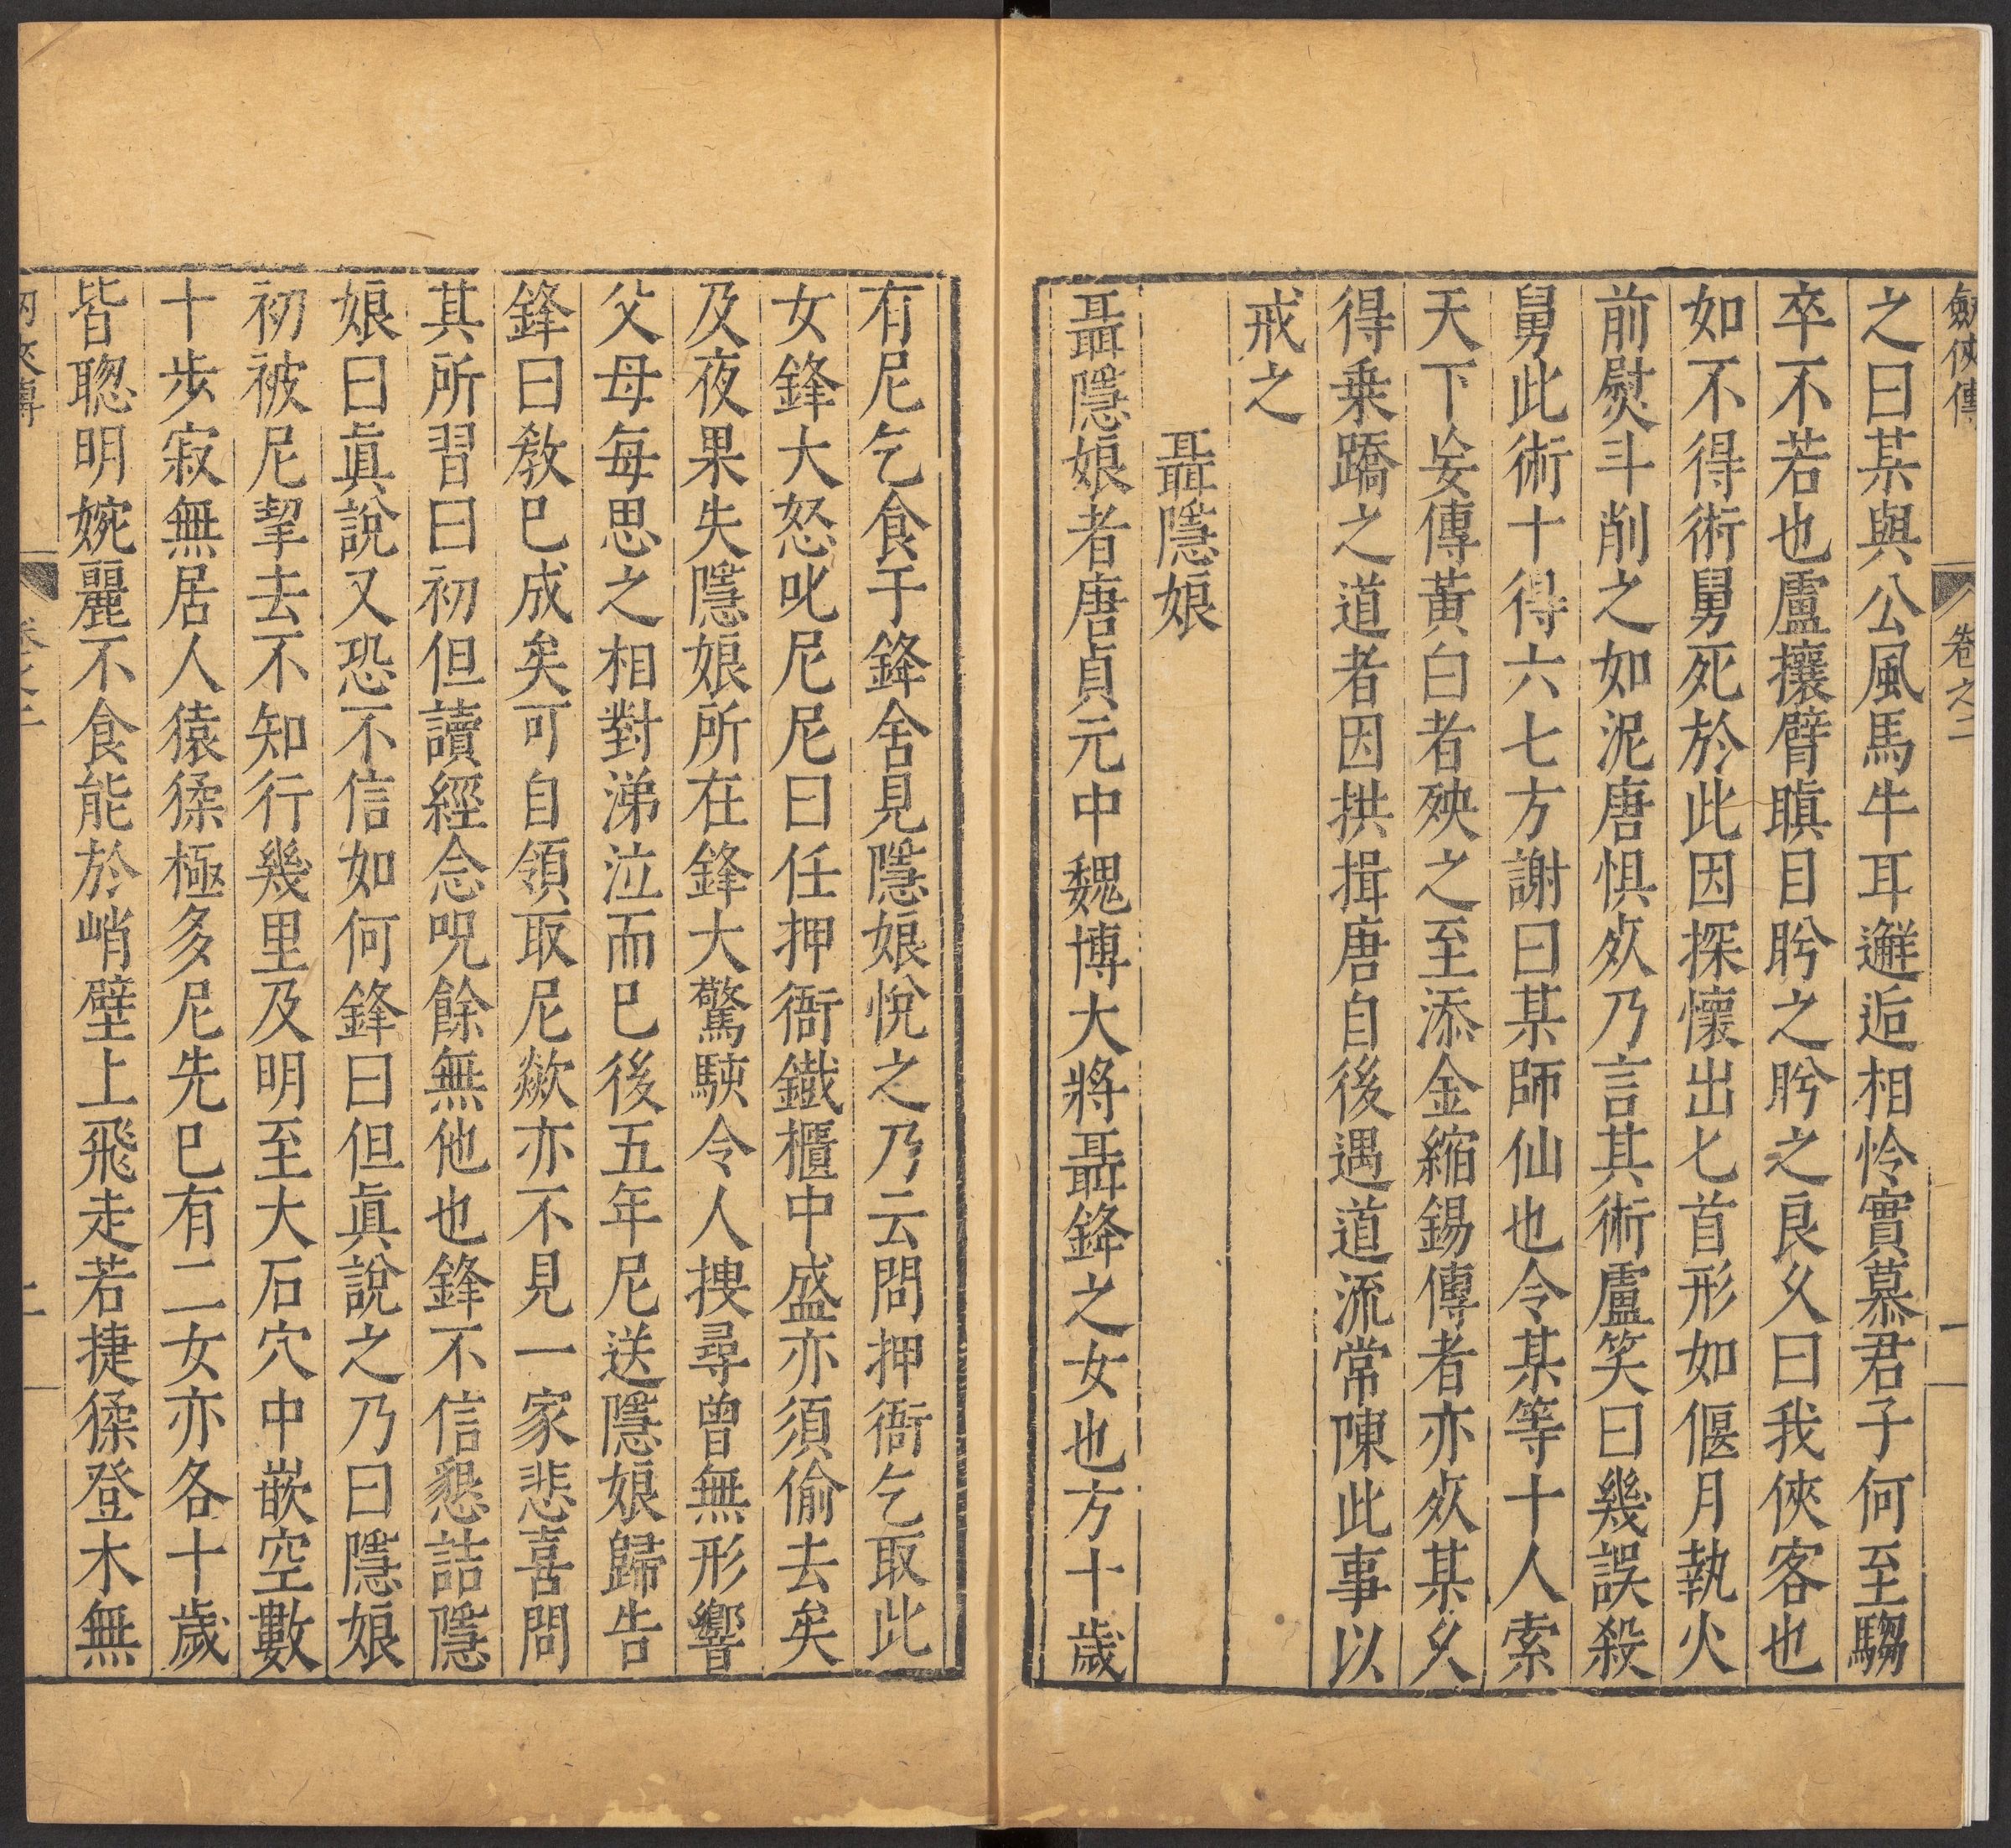 劒俠傳 卷之二 一
之曰某與公風馬牛耳邂逅相怜實慕君子何至騶
卒不若也盧攘臂瞋目眄之眄之良乆曰我俠客也
如不得術舅死於此因探懷出匕首形如偃月執火
前熨斗削之如泥唐惧㸃乃言其術盧笑曰幾誤殺
舅此術十得六七方謝曰某師仙也令某等十人索
天下妄傳黃白者殃之至添金縮錫傳者亦㸃某乆
得乗蹻之道者因拱揖唐自後遇道流常陳此事以
戒之
聶隱娘
聶隱娘者唐貞元中魏博大將聶鋒之女也方十歲
有尼乞食于鋒舍見隱娘悅之乃云問押衙乞取此
女鋒大怒叱尼尼曰任押衙鐵櫃中盛亦須偷去矣
及夜果失隱娘所在鋒大驚駭令人搜尋曾無形響
父母每思之相對涕泣而巳後五年尼送隱娘歸告
鋒曰教巳成矣可自領取尼歘亦不見一家悲喜問
其所習曰初但讀經念呪餘無他也鋒不信懇詰隱
娘曰眞說又恐不信如何鋒曰但眞說之乃曰隱娘
初被尼挈去不知行幾里及明至大石穴中嵌空數
十步寂無居人猿猱極多尼先巳有二女亦各十歲
皆聰明婉麗不食能於峭壁上飛走若捷猱登木無